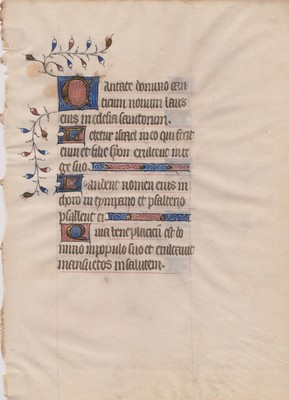 Cantate domino can
ticum novum laus
eius in ecclesia sanctorum.
Letetur israel in eo qui fecit
eum et filie syon exultent in re
ge suo.
Laudent nomen eius in
choro in tympano et psalterio
psallent ei.
Quia bene placitum est do
mino in populo suo et exaltavit
mansuetos in salutem.